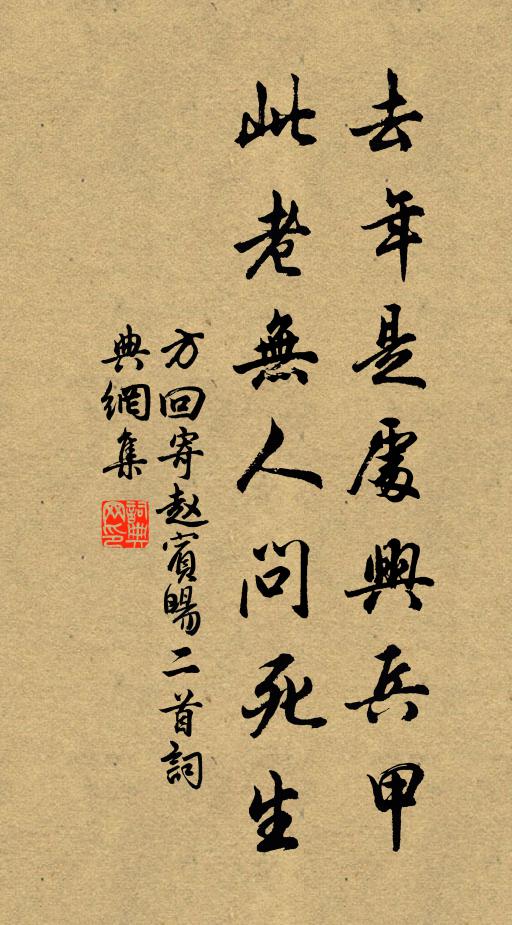 去年是處興兵甲
此老無人問死生
方回寄赵賓暘二首詞
典網集
詞典
网印